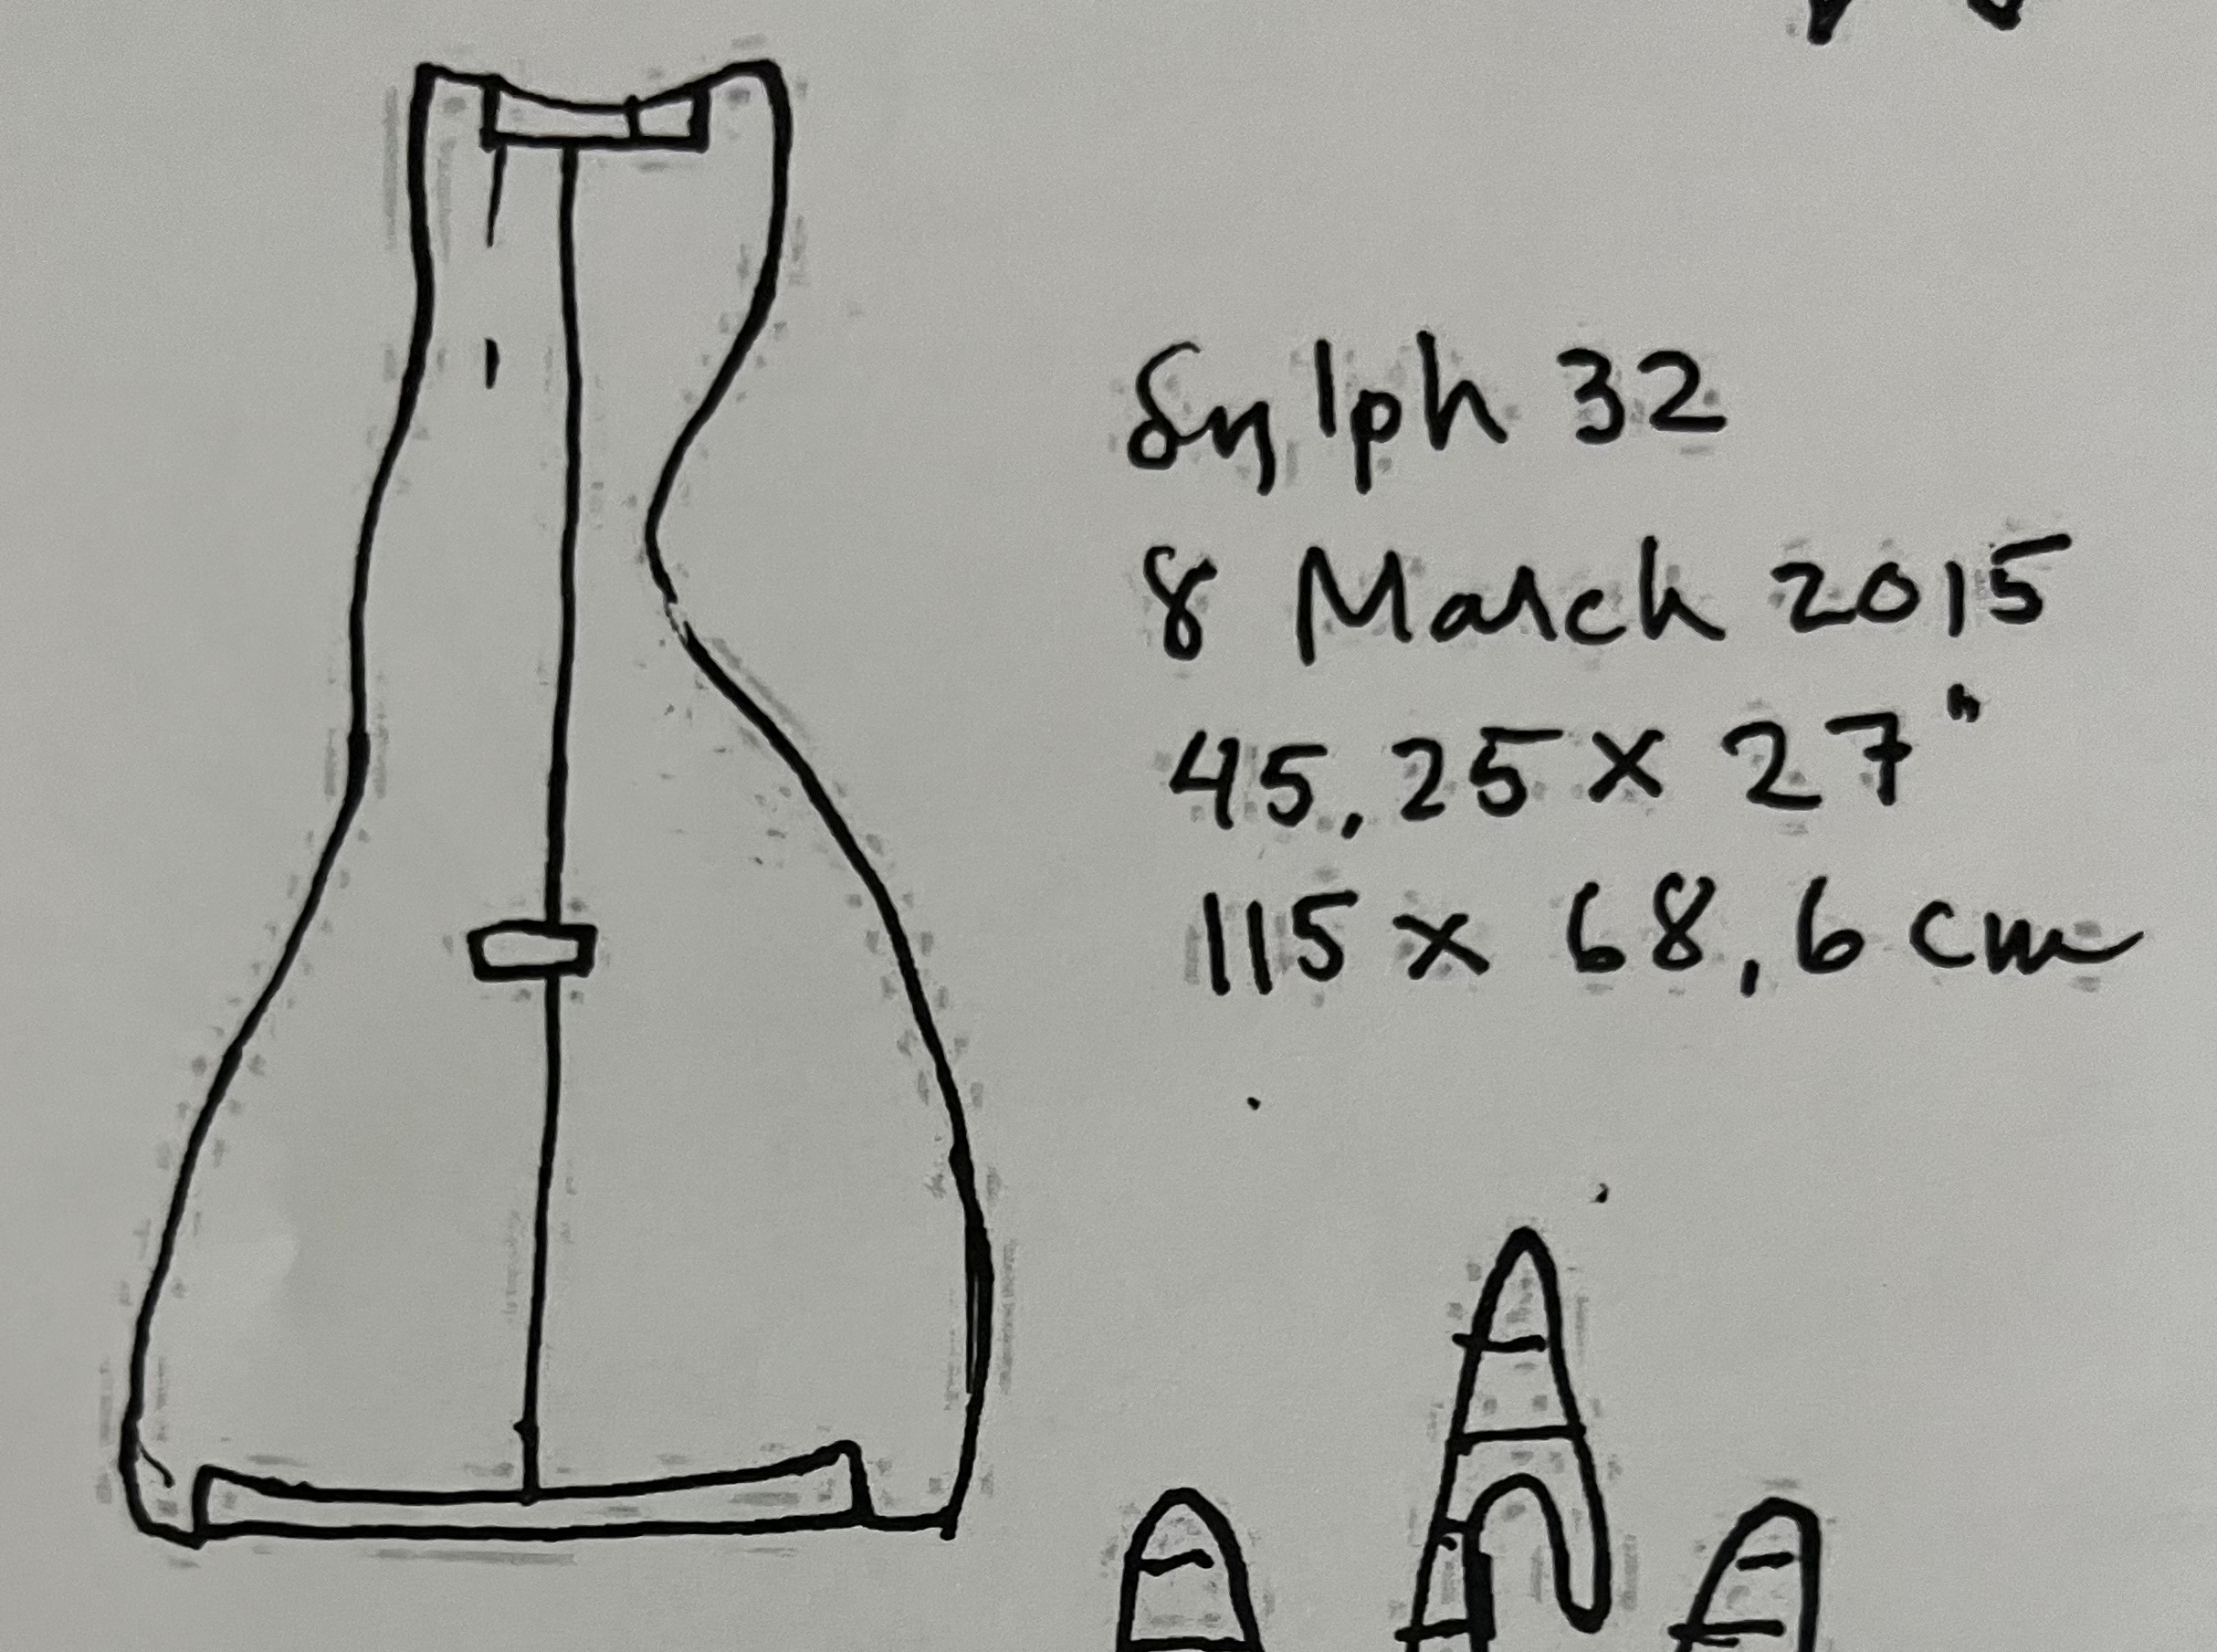 Sylph 32
8 March 2015
45,25 x 27"
115 x 68,6 cm